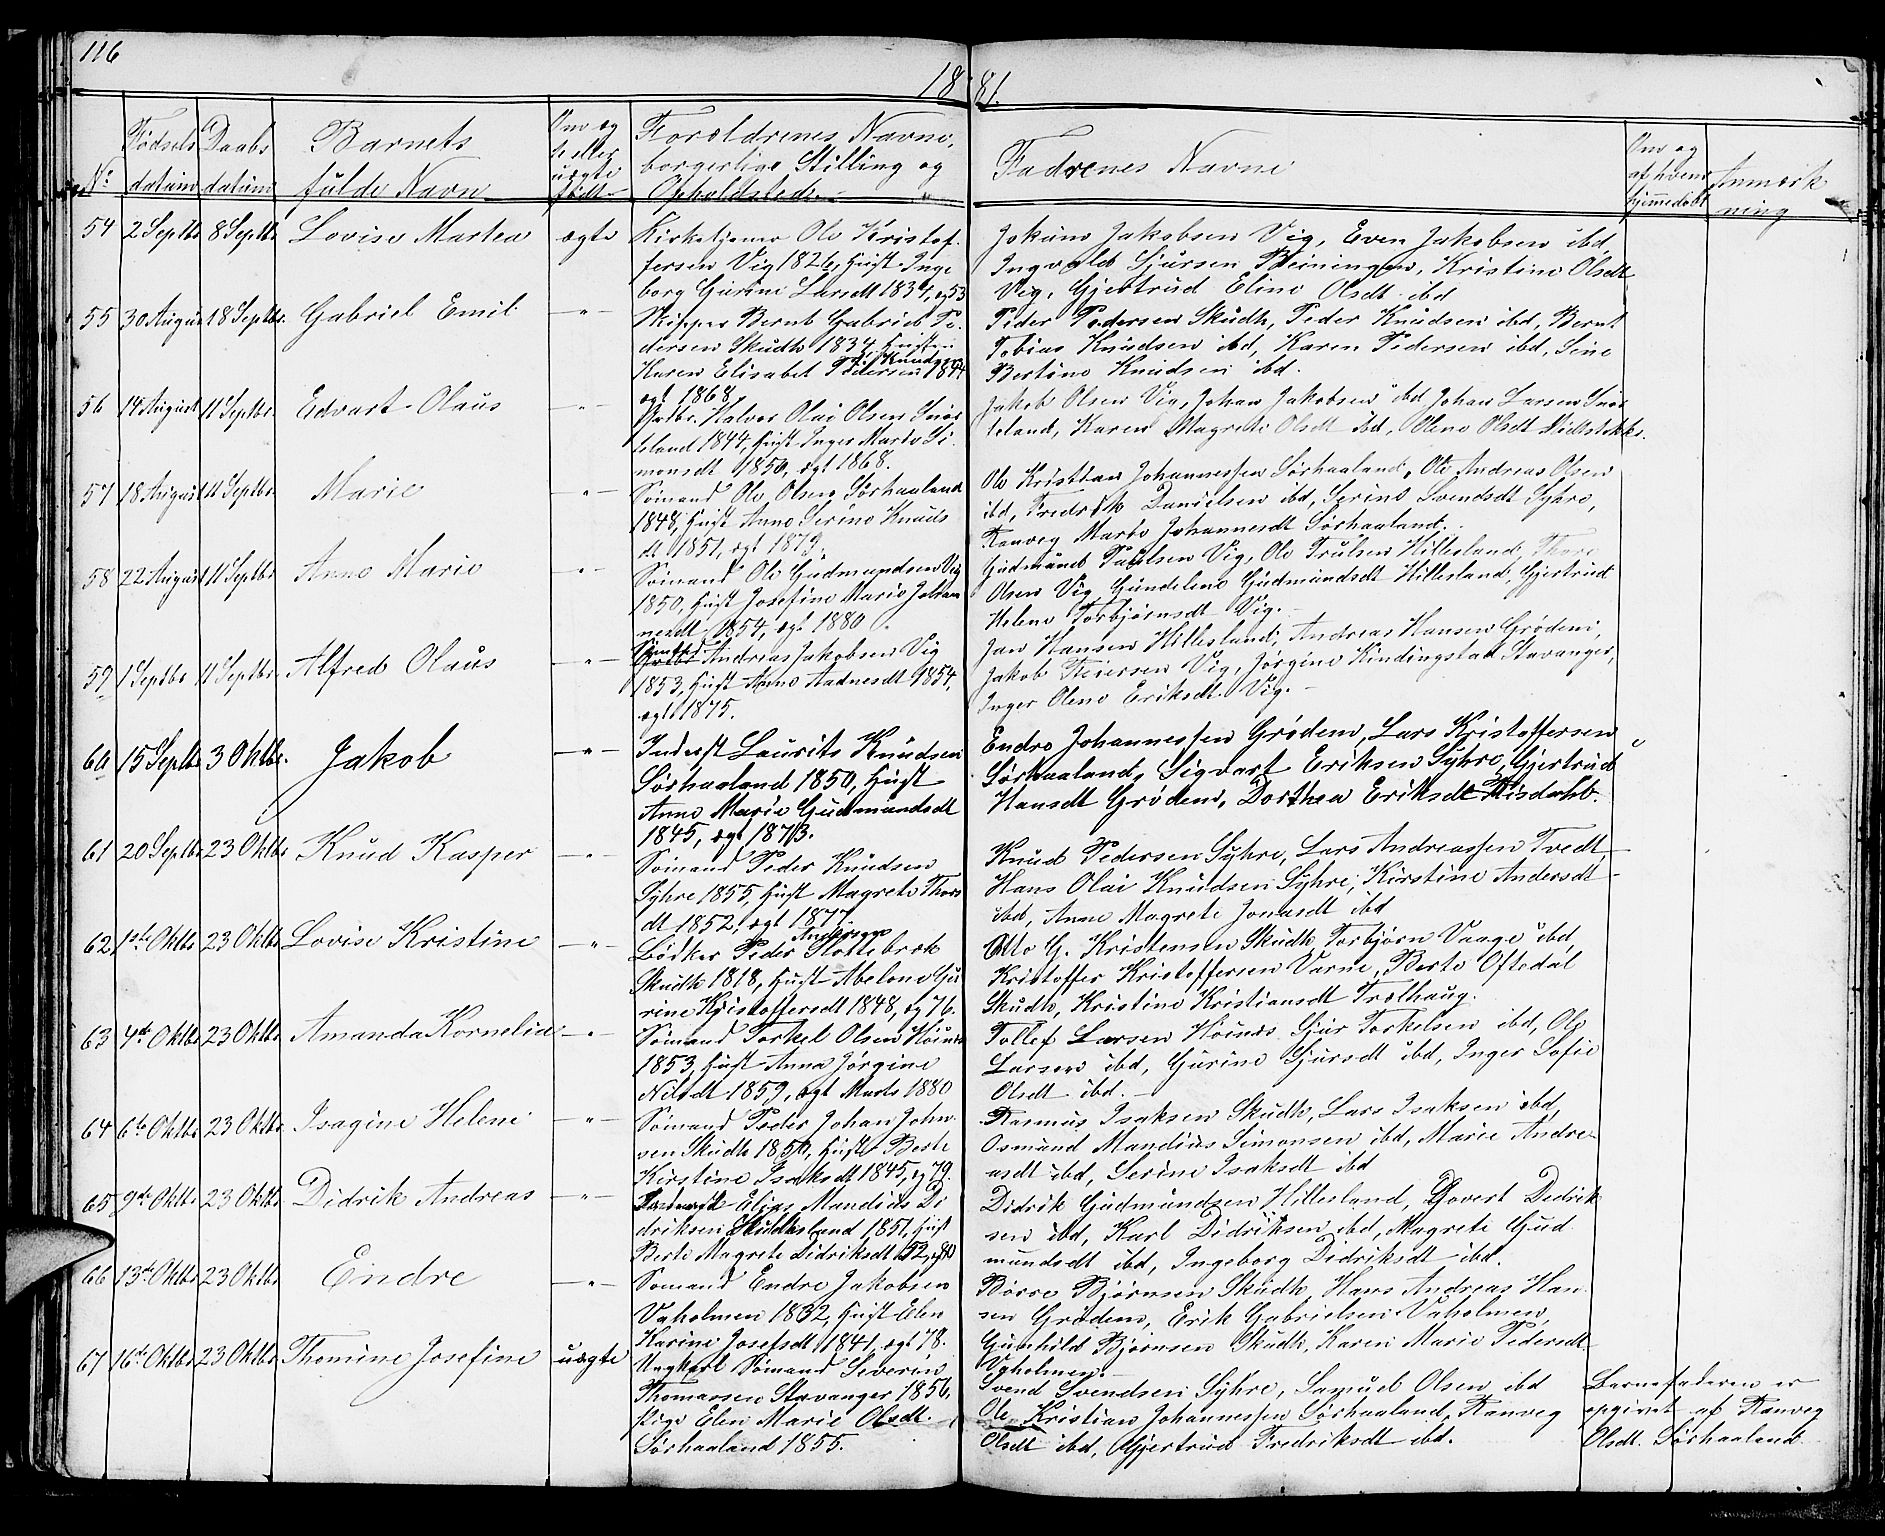 116
18 81.
No
Fødsels
datum
Daabs
datum
Barnets
fulde Navn
Om æg
te eller
uægte
født
Forældrenes Navne,
borgerlige Stilling og
Opholdsted.
Fadrenes Navne
Om og
af hvem
hjemmedøbt
Anmærk
ning
54 2 Septbr 8 Septbr Lovise Martea ægte
Kirketjener Ole Kristof-
fersen Vig 1826, Hust. Inge
borg Gurine Larsdt 1834, æg 53
Jokum Jakobsen Vig, Even Jakobsen ibd
Ingvald Sjursen Kristine Olsdt
Vig, Gjertrud Eline Olsdt ibd
55 30 August 18 Septbr. Gabriel Emil -"-
Skipper Bernt Gabriel Pe-
dersen Skudh 1834, Hust
Karen Elisabet Pedersen 1844
ægt 1868
Peder Pedersen Skudh, Peder Knudsen ibd, Bernt
Tobias Knudsen ibd, Karen Pedersen ibd, Sine
Bertine Knudsen ibd.
56 14 August 11 Septbr. Edvart Olaus -"-
Halvor Olai Olsen Snør
teland 1844, Hust Inger Marte Si
monsdt 1850, ægt 1868.
Jakob Olsen Vig, Johan Jakobsen ibd Johan Larsen Snør
teland, Karen Magrete Olsdt ibd, Olene Olsdt
57 18 August 11 Septbr Marie -"-
Sømand Ole Olsen Sørhaaland
1848, Hust Anne Serine Knuds
dt 1851, ægt 1879.
Ole Kristian Johannessen Sørhaaland, Ole Andreas Olsen
ibd, Fredrik Danielsen ibd, Serine Svendsdt Syhre,
Ranveg Marte Johannesdt Sørhaaland.
58 22 August 11 Septbr Anne Marie -"-
Sømand Ole Gudmundsen Vig
1850, Hust Josefine Marie Johan
nesdt 1854, ægt 1880.
Gudmund Paulsen Vig, Ole Trulsen Hillesland, Thore
Olsen Vig, Gundeline Gudmundsdt Hillesland, Gjertrud
Helene Torbjørnsdt Vig.
59 1 Septbr 11 Septbr. Alfred Olaus -"-
Sømand Andreas Jakobsen Vig
1853, Hust Anne Aadnesdt 1854,
ægt 1875.
Jan Hansen Hillesland, Andreas Hansen Grødem,
Jakob Vig, Jørgine Kindingstad Stavanger,
Inger Olene Eriksdt. Vig.
60 15 Septbr 3 Oktbr. Jakob -"-
Inderst Laurits Knudsen
Sørhaaland 1850, Hust
Anne Marie Gudmundsdt
1845, ægt 1873.
Endre Johannessen Grødem, Lars Kristoffersen
Sørhaaland, Sigvart Eriksen Syhre, Gjertrud
Hansdt Grødem, Dorthea Eriksdt Risdahl.
61 20 Septbr 23 Oktbr Knud Kasper -"-
Sømand Peder Knudsen
Syhre 1855, Hust Magrete Thors
dt 1852, ægt 1877.
Knud Pedersen Syhre, Lars Andreassen Tvedt
Hans Olai Knudsen Syhre, Kirstine Andersdt
ibd, Anne Magrete Jonasdt ibd
62 1ste Oktbr 23 Oktbr Lovise Kristine -"-
Bødker Peder Slottebrok
Skudh 1818, Hust Abelone Gu
rine Kristoffersdt 1848, æg 76.
Otto G. Kristensen Skudh, Torbjørn Vaage ibd,
Kristoffer Kristoffersen Varne, Berte Oftedal
Skudh, Kristine Kristiansdt Trælhaug.
63 4de Oktbr 23 Oktbr Amanda Kornelia -"-
Sømand Torkel Olsen Høines
1853, Hust Anna Jørgine
Nilsdt 1859, ægt Marts 1880
Tollef Larsen Høines Sjur Torkelsen ibd, Ole
Larsen ibd, Gurine Sjursdt ibd, Inger Sofie
Olsdt ibd.
64 6te Oktbr 23 Oktbr Isagine Helene -"-
Sømand Peder Johan John
sen Skudh 1850, Hust Berte
Kirstine Isaksdt 1845, æg 79.
Rasmus Isaksen Skudh, Lars Isaksen ibd,
Osmund Mandius Simonsen ibd, Marie Andre-
asdt ibd, Serine Isaksdt ibd
65 9de Oktbr 23 Oktbr Didrik Andreas -"-
Elias Mandius Di
driksen 1851, Hust
Berte Magrete Didriksdt 52, æg 80
Didrik Gudmundsen Hillesland, Govert Didrik
sen ibd, Karl Didriksen ibd, Magrete Gud
mundsdt ibd, Ingeborg Didriksdt ibd.
66 13de Oktbr 23 Oktbr Endre -"-
Sømand Endre Jakobsen
Vaholmen 1832, Hust Elen
Karine Josefsdt 1841, ægt 78.
Børre Bjørnsen Skudh, Hans Andreas Han
sen Grødem, Erik Gabrielsen Vaholmen,
Gunhild Bjørnsen Skudh, Karen Marie Pedersdt
Vaholmen.
67 16de Oktbr 23 Oktbr Thomine Josefine uægte
Ungkarl Sømand Severin
Thomassen Stavanger 1856,
Pige Elen Marie Olsdt.
Sørhaaland 1855.
Svend Svendsen Syhre, Samuel Olsen ibd
Ole Kristian Johannessen Sørhaaland, Ranveg
Olsdt ibd, Gjertrud Fredriksdt ibd.
Barnefaderen er
opgivet af Ranveg
Olsdt. Sørhaaland